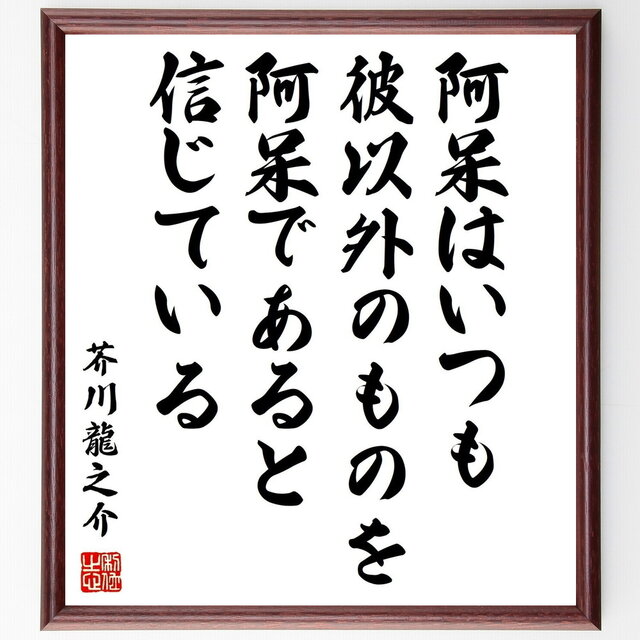 阿呆はいつも
彼以外のものを
阿呆であると
信じている
芥川龍之介